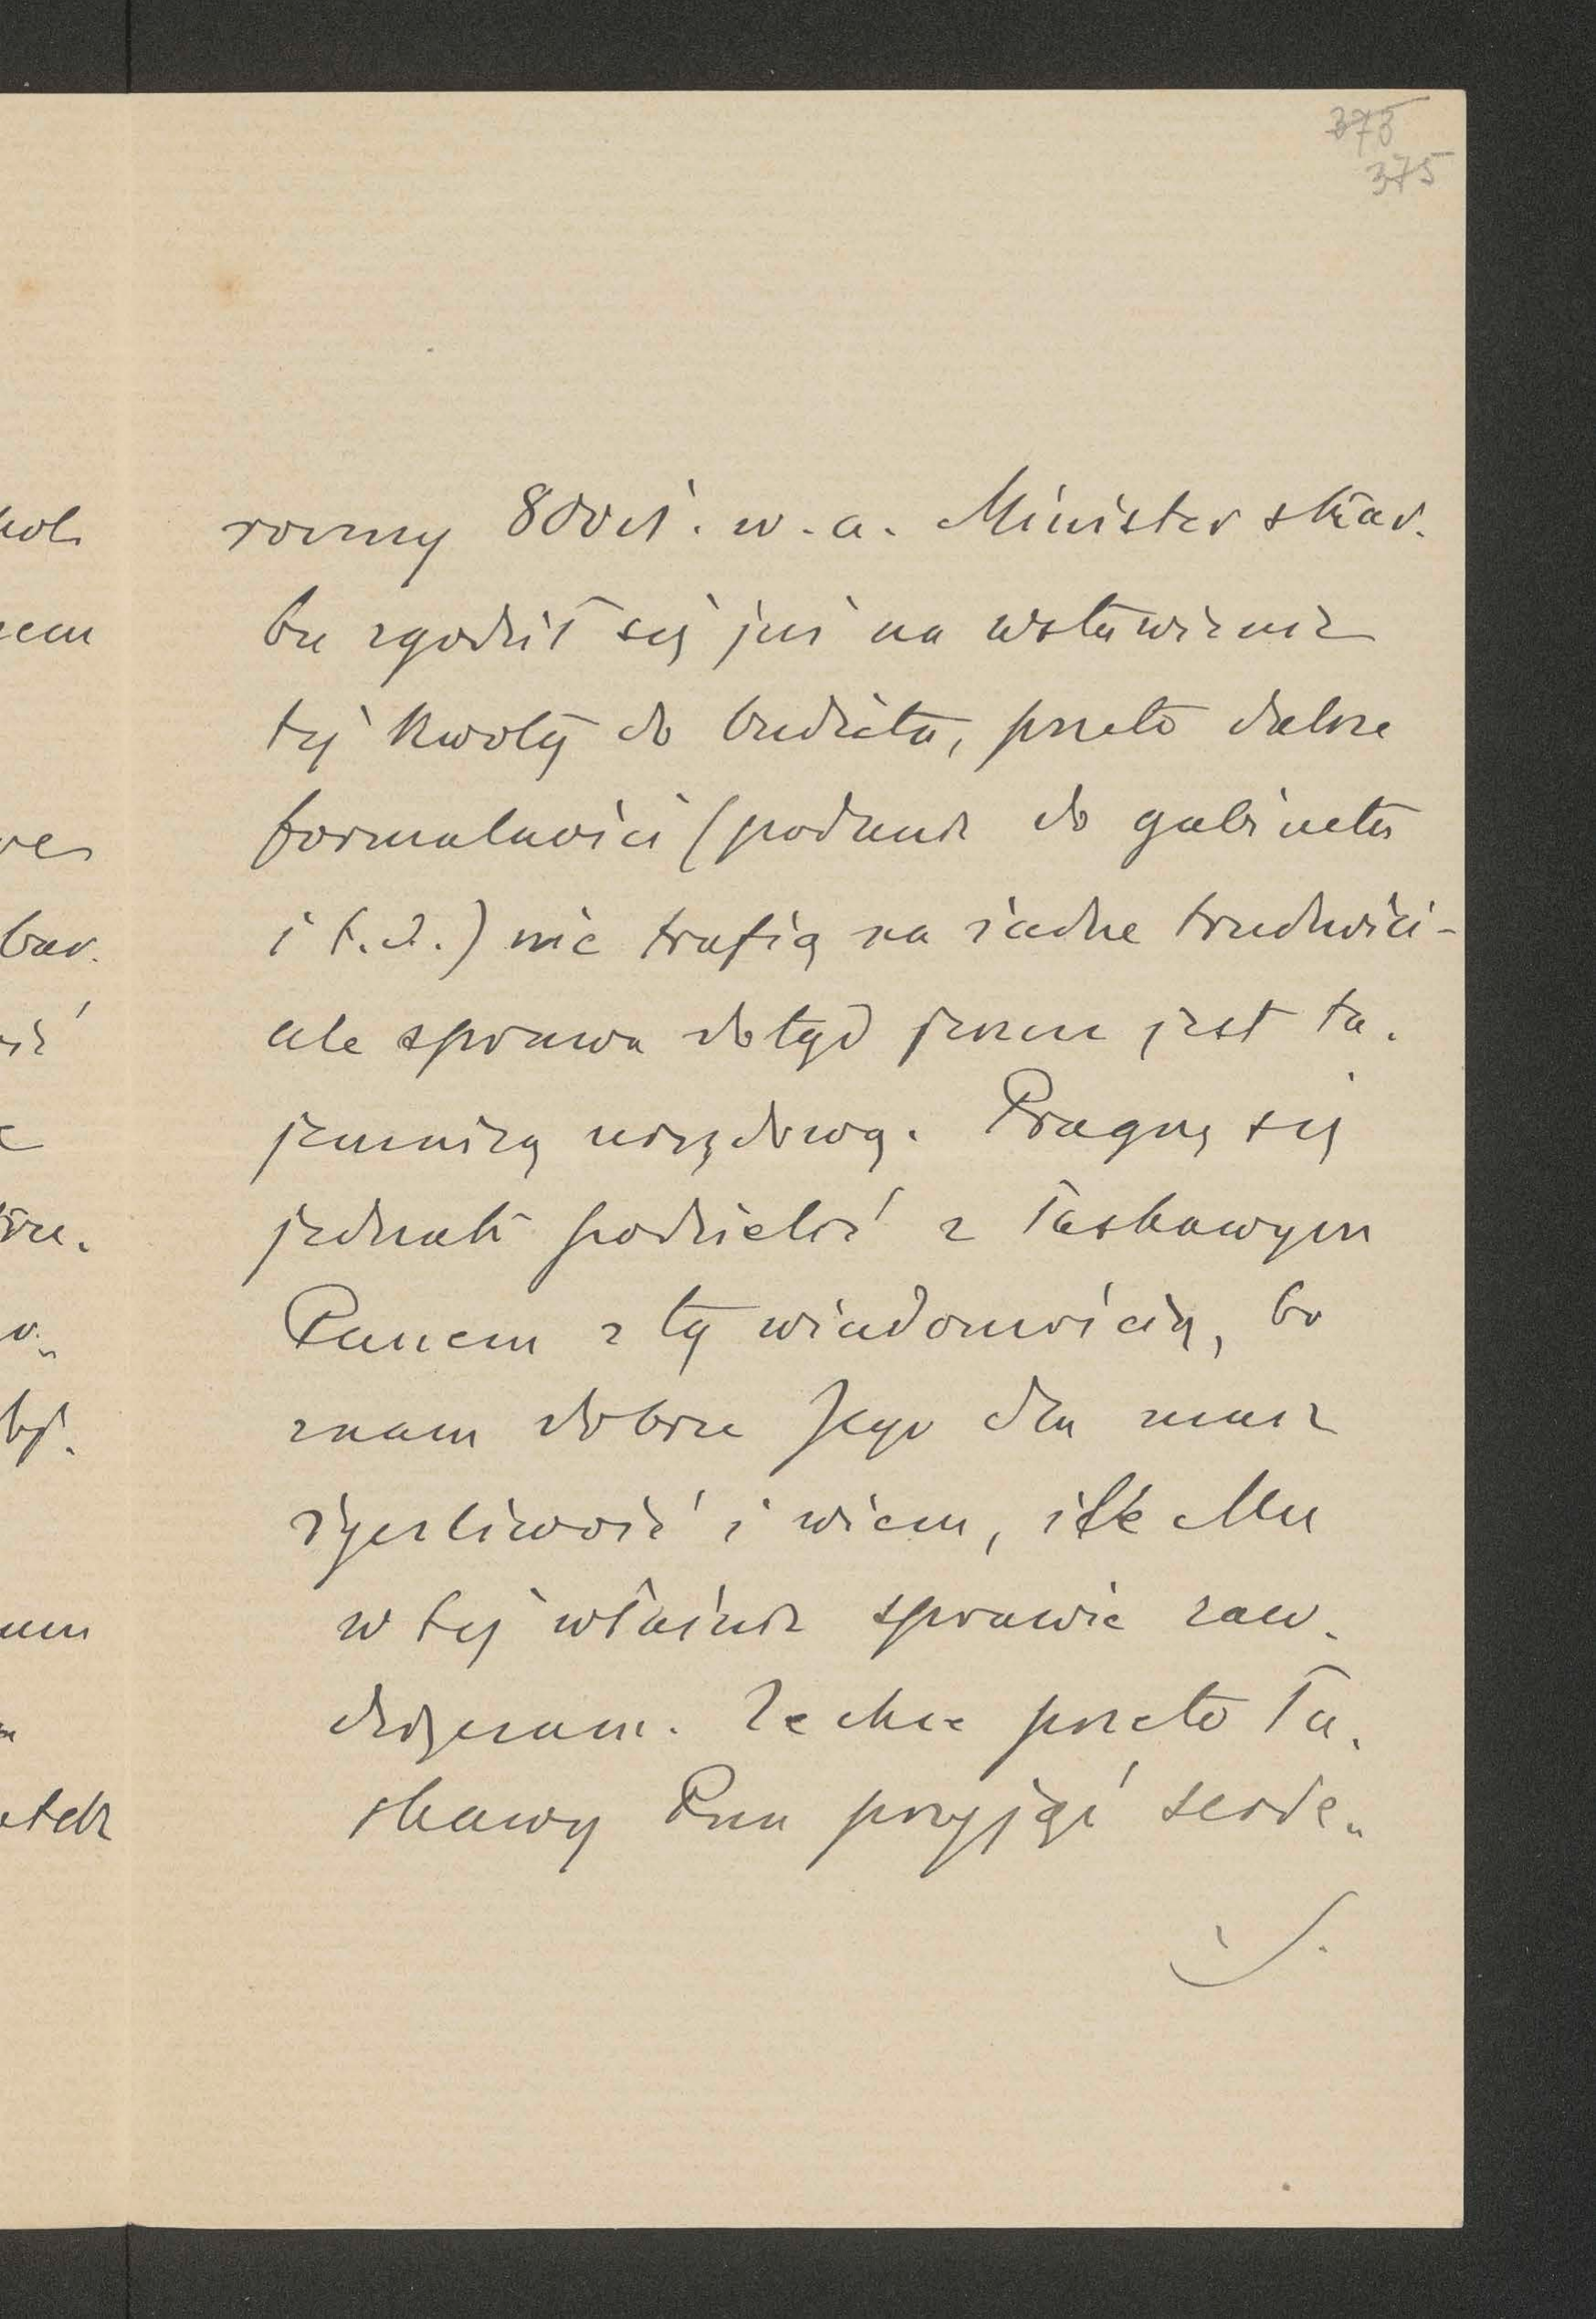 373
375
roczny 800 zł. w. a. Minister skar-
bu zgodził się już na wstawienie
tej kwoty do budżetu, przeto dalsze
formalności (podanie do gabinetu
i t. d.) nie trafią na żadne trudności -
ale sprawa dotąd jeszcze jest ta-
jemnicą urzędową. Pragnę się
jednak podzielić z łaskawym
Panem z tą wiadomością, bo
znam dobrze Jego dla mnie
życzliwość i wiem, ile Mu
w tej właśnie sprawie zaw-
dzięczam. Zechce przeto Ła-
skawy Pan przyjąć serde-